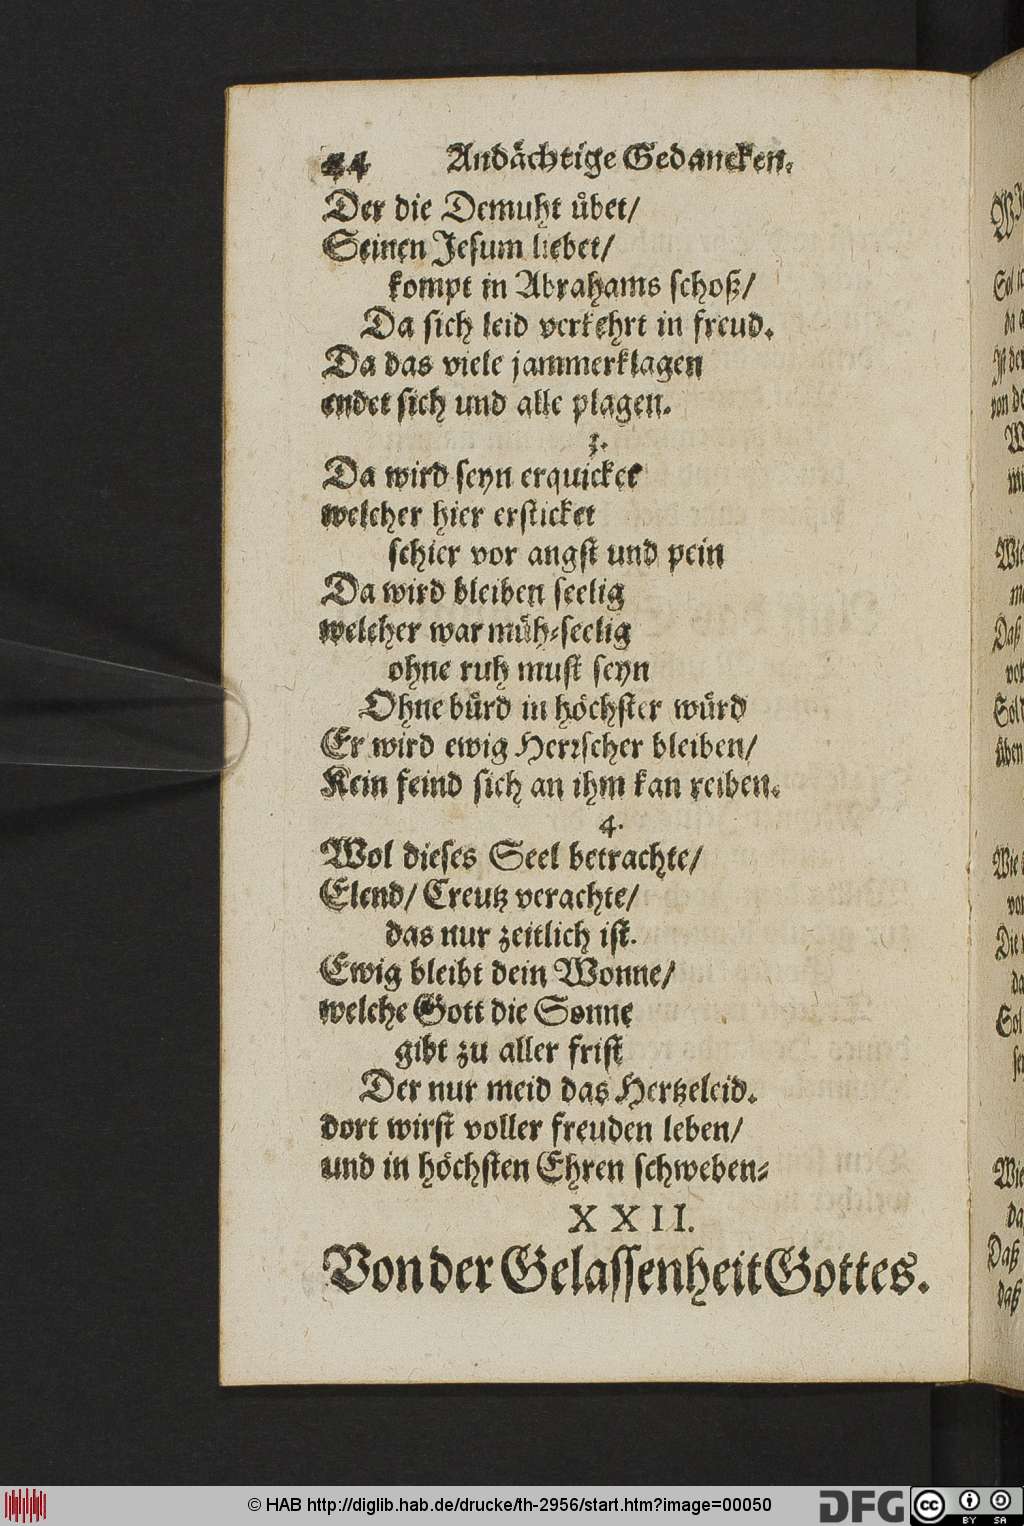 44 Andächtige Gedancken.
Der die Demuht übet/
Seinen Jesum liebet/
kompt in Abrahams schoß/
Da sich leid verkehrt in freud.
Da das viele jammerklagen
endet sich und alle plagen.
3.
Da wird seyn erquicket
welcher hier ersticket
schier vor angst und pein
Da wird bleiben seelig
welcher war müh-seelig
ohne ruh must seyn
Ohne bürd in höchster würd
Er wird ewig Herrscher bleiben/
Kein feind sich an ihm kan reiben.
4.
Wol dieses Seel betrachte/
Elend/ Creutz verachte/
das nur zeitlich ist.
Ewig bleibt dein Wonne/
welche Gott die Sonne
gibt zu aller frist
Der nur meid das Hertzeleid.
dort wirst voller freuden leben/
und in höchsten Ehren schweben-
XXII.
Von der Gelassenheit Gottes.
© HAB http://diglib.hab.de/drucke/th-2956/start.htm?image=00050
DFG
cc BY SA